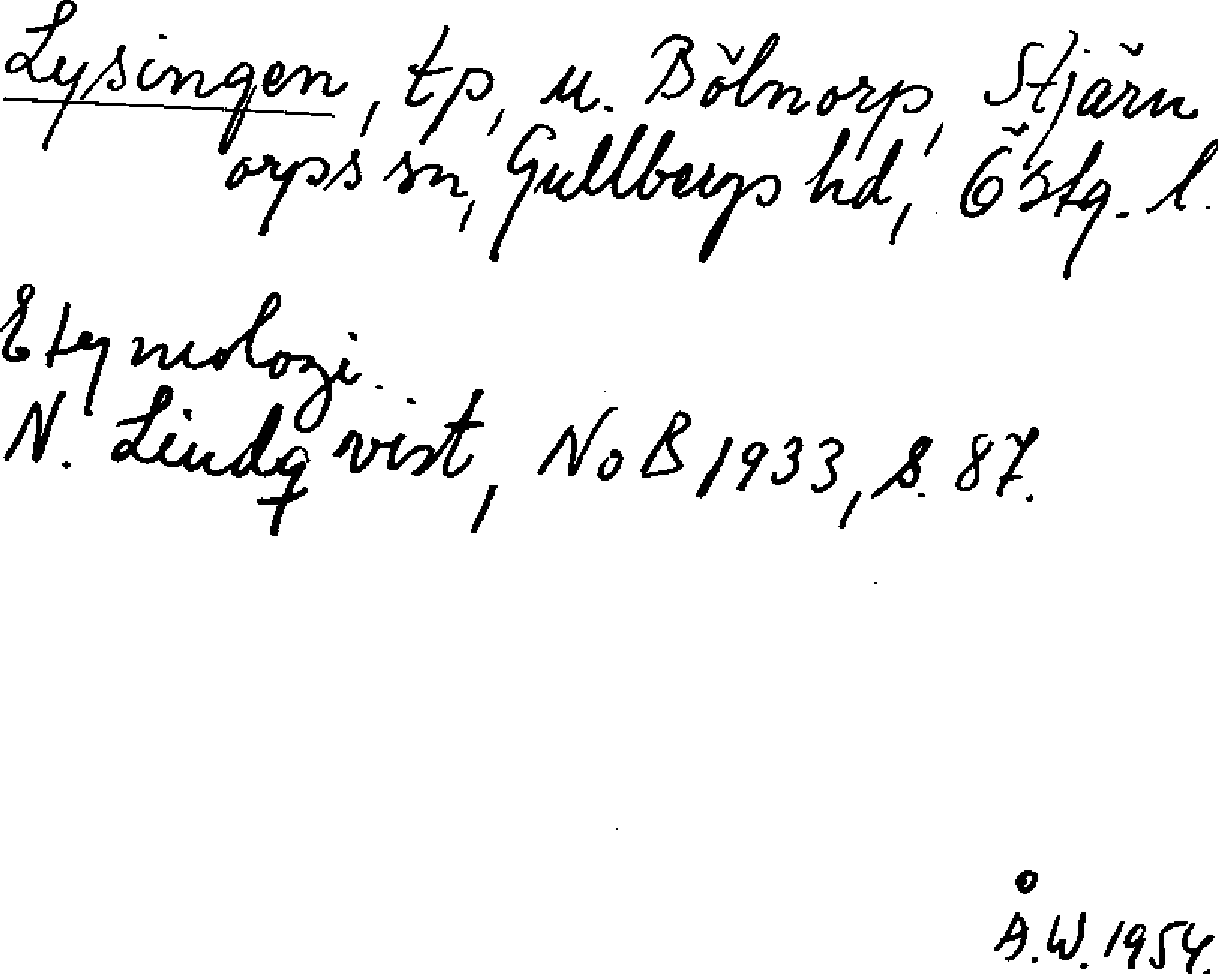 Lysingen, tp, u. Bölnorp, Stjärn
orps sn, Gullbergs hd, Östg. l.
Etymologi.
N. Lindqvist, NoB 1933, s. 87.
Å.W. 1954.